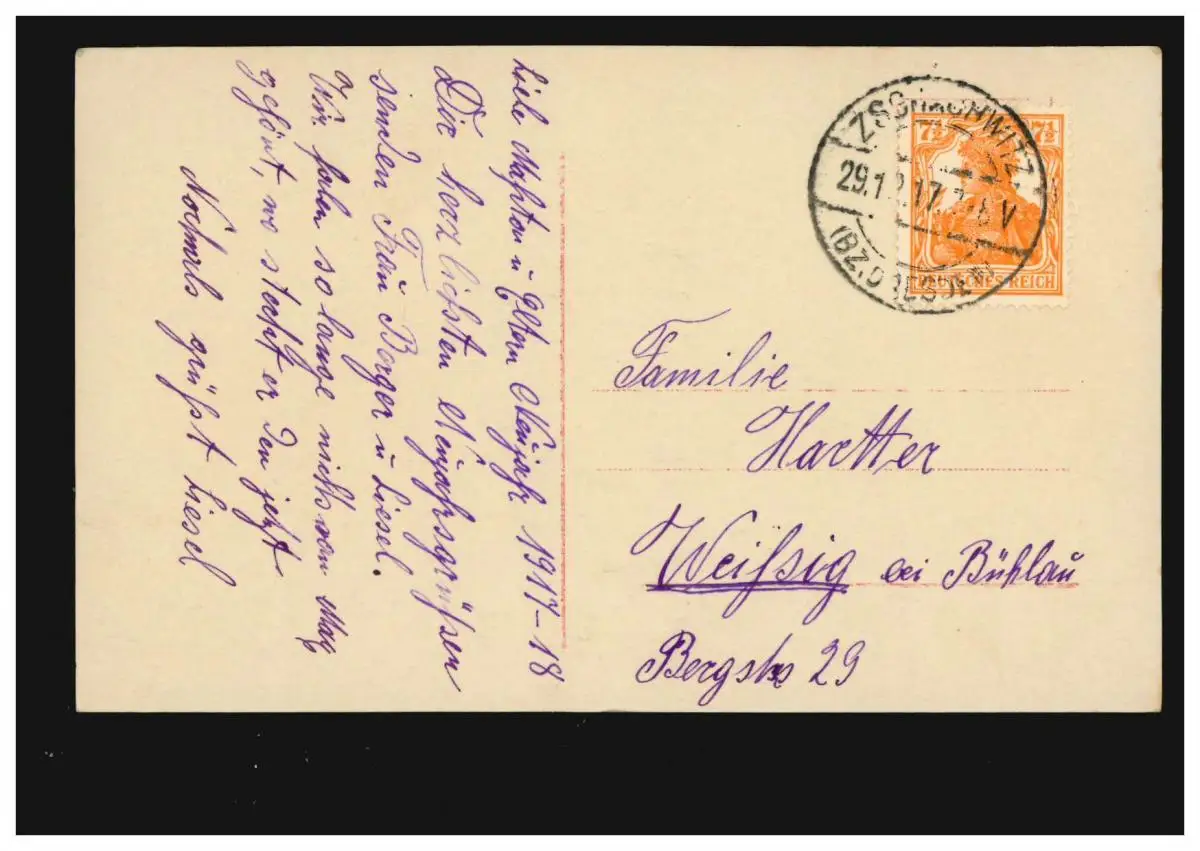 Liebe u Eltern Neujahr 1917-18
Die herzlichsten Neujahrsgrüßen
senden Frau Berger u Liesel.
Wir haben so lange nichts von Max
gehört, wo steckt er den jetzt
Nochmals grüßt Liesel
ZSCHACHWITZ
29.12.17. V
(BZ. DRESDEN)
7½ 7½
DEUTSCHES REICH
Familie
Hartter
Weißig bei Bühlau
Bergstr 29